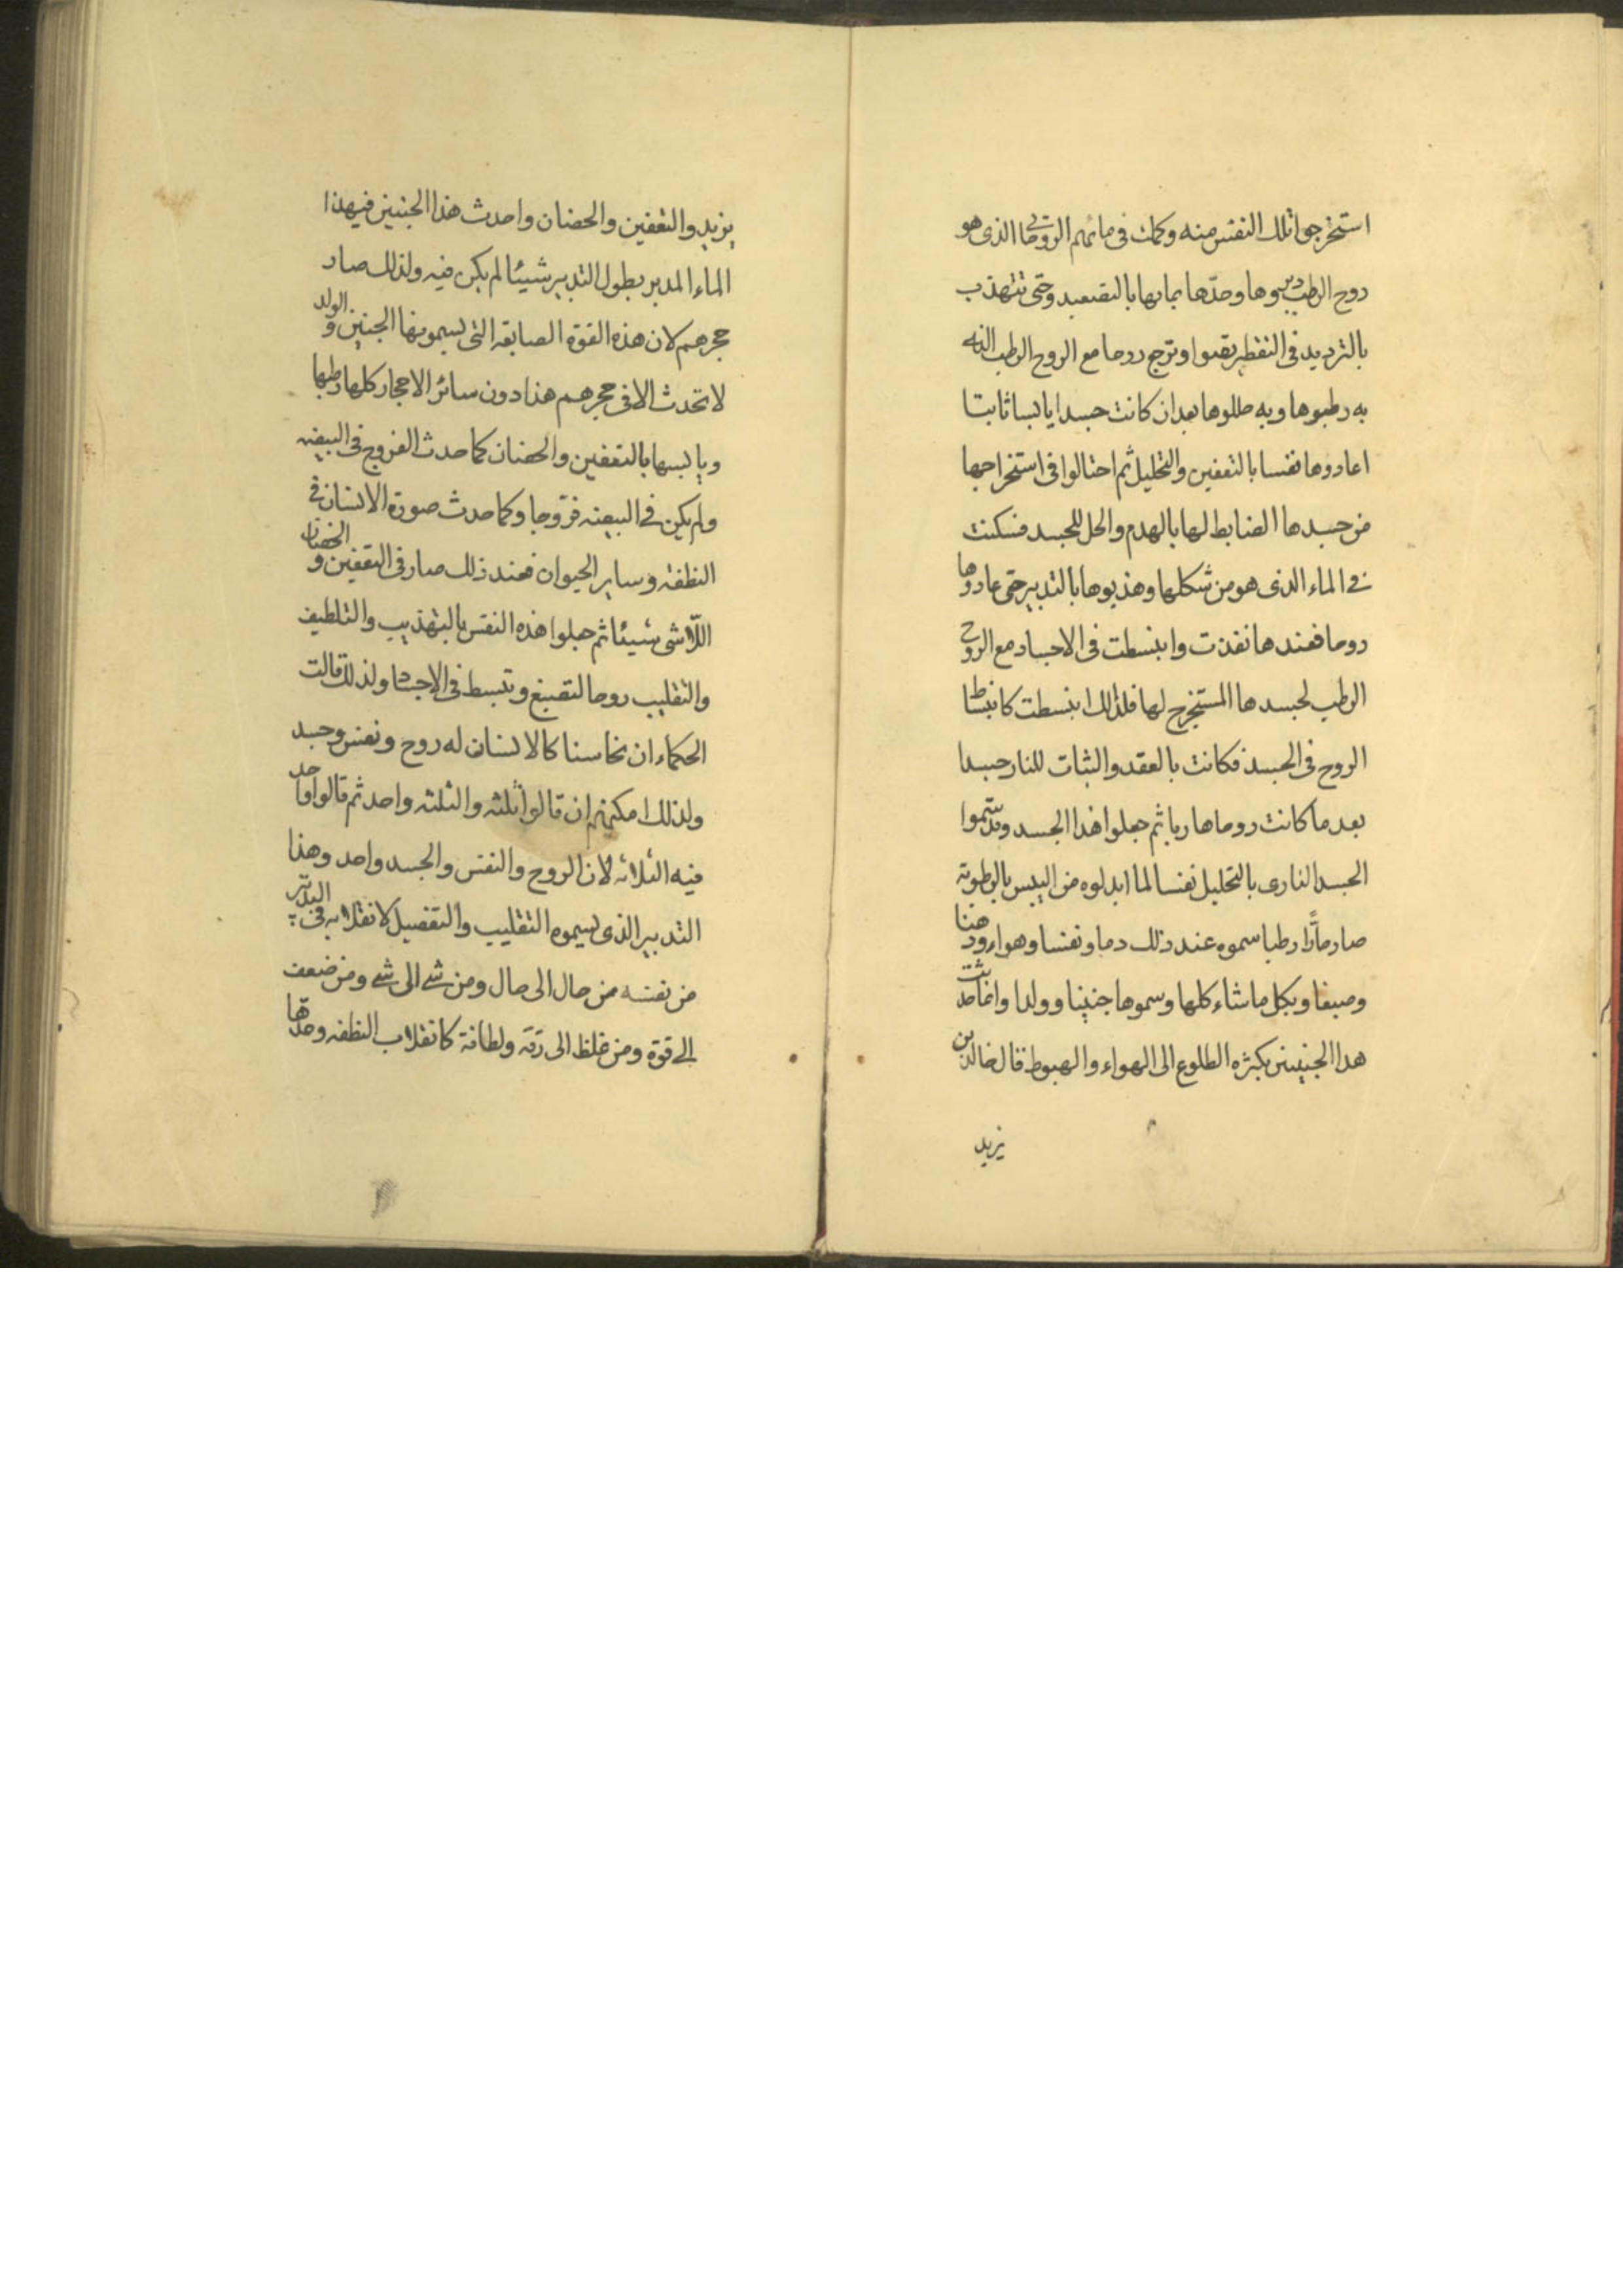 استخرجوا تلك النفس منه وكملت في مائهم الروحا الذي هو
روح الرطب دبروها وحدّها بمابها بالتصعيد وحتى تتهذب
بالترديد في التقطير بقبوا وترجع روحا مع الروح الرطب الذي
به رطبوها وبه حللوها بعد ان كانت جسدا يابسا ثابتا
اعادوها نفسا بالتعفين والتحليل ثم احتالوا في استخراجها
من جسدها الضابط لها بالهدم والحل للجسد فسكنت
في الماء الذي هو من شكلها وهذبوها بالتدبير حتى عادوها
روحا فعندها نفذت وانبسطت في الاجساد مع الروح
الرطب لجسدها المستخرج لها فلذلك انبسطت كانبساط
الروح في الجسد فكانت بالعقد والثبات للنار جسدا
بعد ما كانت روحا هاربا ثم جعلوا هذا الجسد وقد سموا
الجسد الناري بالتحليل نفسا لما ابدلوه من اليبس بالرطوبة
صار مارّا رطبا سموه عند ذلك دما ونفسا وهواء ودهنا
وصبغا وبكل ما شاء كلها وسموها جنينا وولدا وانما حدثت
هذا الجنين بكثره الطلوع الى الهواء والهبوط قال خالد بن
يزيد
يزيد والتعفين والحضان واحدث هذا الجنين فيهذا
الماء المدبر بطول التدبير شيئا لم يكن فيه ولذلك صار
حجرهم لان هذه القوة الصابغه التي يسمونها الجنين و الولد
لا تحدث الا في حجرهم هذا دون سائر الاحجار كلها رطبها
ويابسها بالتعفين والحضنان كما حدث الفروج في البيضه
ولم يكن في البيضه فروجا وكما حدث صورة الانسان في
النطفة وساير الحيوان فعند ذلك صار في التعفين و الحضان
اللّاشي شيئا ثم جعلوا هذه النفس بالتهذيب والتلطيف
والتقليب روحا لتصبغ وتبسط في الاجساد ولذلك قالت
الحكماء ان نحاسنا كالانسان له روح ونفس وجسد
ولذلك امكنهم ان قالوا ثلثه والثلثه واحد ثم قالوا واحد
فيه الثلاثه لان الروح والنفس والجسد واحد وهذا
التدبير الذي يسموه التقليب والتفصيل لانقلابه في التدبير
من نفسه من حال الى حال ومن شي الى شي ومن ضعف
الى قوة ومن غلظ الى رقة ولطافة كانقلاب النطفه وحدّها